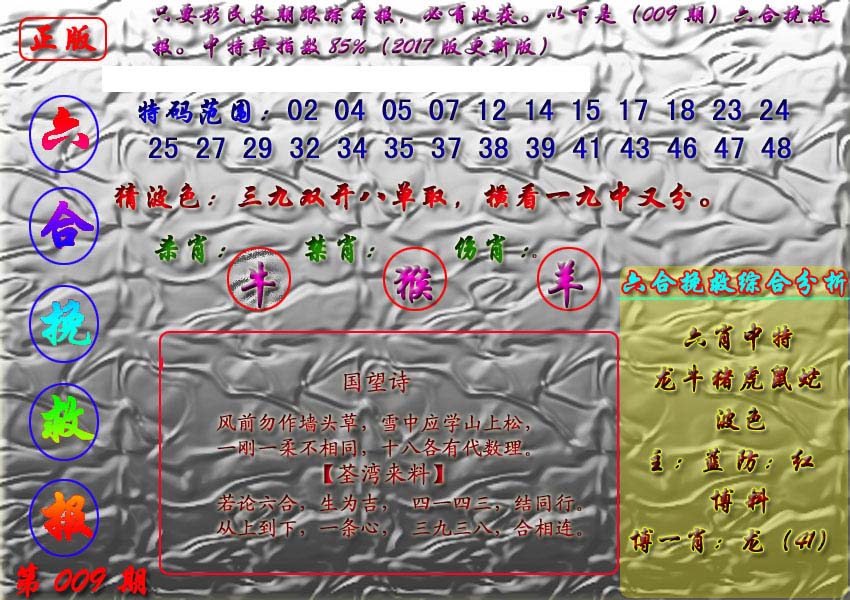 正版
只要彩民长期跟踪本报，必有收获。以下是（009期）六合挽救
报。中特率指数85%（2017版更新版）
六合挽救报
第009期
特码范围：02 04 05 07 12 14 15 17 18 23 24
25 27 29 32 34 35 37 38 39 41 43 46 47 48
猜波色：三九双开八单取，横看一九中又分。
杀肖：牛 禁肖：猴 伤肖：羊。
国望诗
风前勿作墙头草，雪中应学山上松，
一刚一柔不相同，十八各有代数理。
【荃湾来料】
若论六合，生为吉， 四一四三，结同行。
从上到下，一条心， 三九三八，合相连。
六合挽救综合分析
六肖中特
龙牛猪虎鼠蛇
波色
主：蓝防：红
博料
博一肖：龙（41）